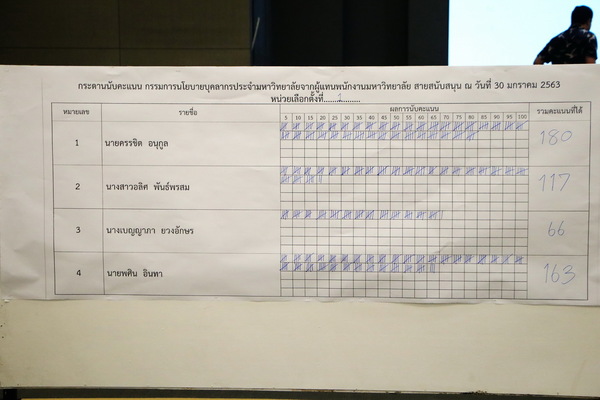 กระดานนับคะแนน กรรมการนโยบายบุคลากรประจำมหาวิทยาลัยจากผู้แทนพนักงานมหาวิทยาลัย สายสนับสนุน ณ วันที่ 30 มกราคม 2563
หน่วยเลือกตั้งที่......1..........
หมายเลข รายชื่อ ผลการนับคะแนน รวมคะแนนที่ได้
5 10 15 20 25 30 35 40 45 50 55 60 65 70 75 80 85 90 95 100
1 นายครรชิต อนุกูล 180
2 นางสาวอลิศ พันธ์พรสม 117
3 นางเบญญาภา ยวงอักษร 66
4 นายพศิน อินทา 163